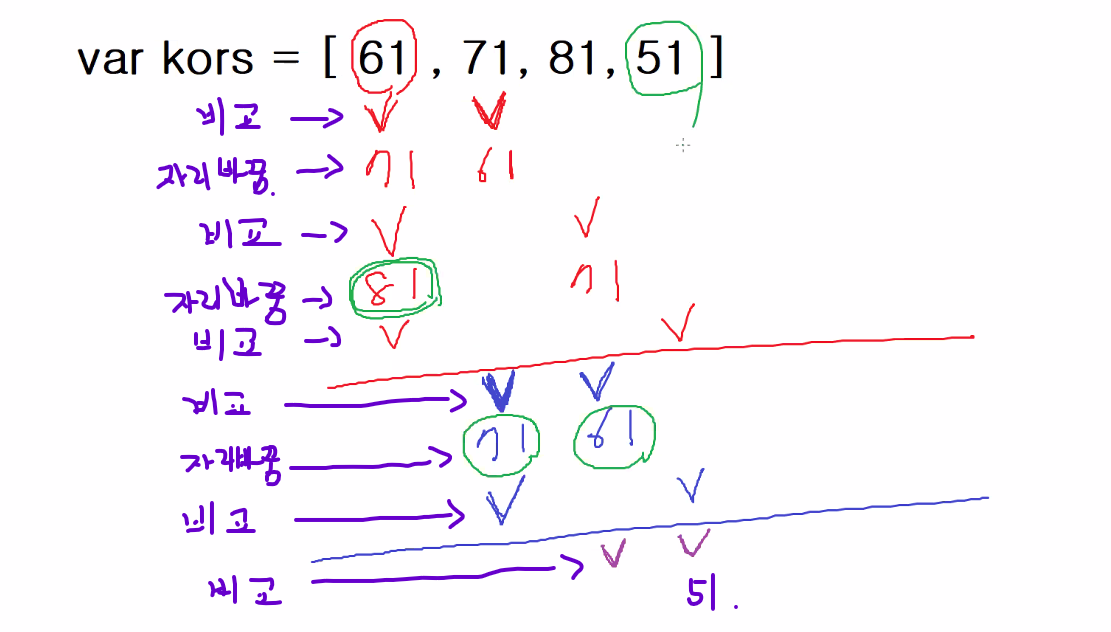 var kors = [ 61 , 71, 81, 51 ]
비교
자리바꿈. 71 61
비교
자리바꿈 81 71
비교
비교
자리바꿈 71 61
비교
비교 51.